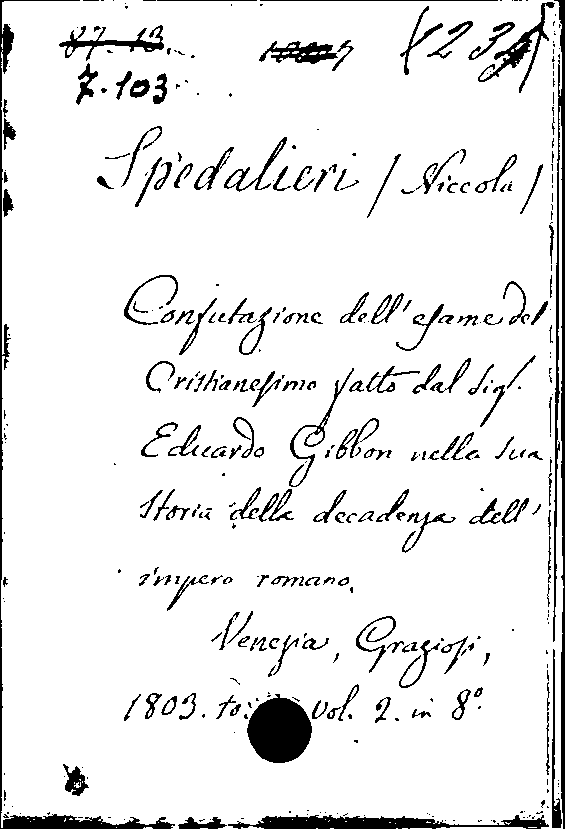 87.13.
7.103
Spedalieri / Niccola /
Confutazione dell' esame del
Cristianesimo fatto dal Sig.
Eduardo Gibbon nella sua
Storia della decadenza dell'
impero romano.
Venezia, Graziosi,
1803. to: vol. 2. in 8°.